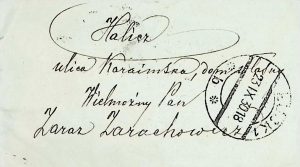 Halicz
ulica Karaimska, dom własny
Wielmożny Pan
Zaraz Zarachowicz
23 IX 30 18